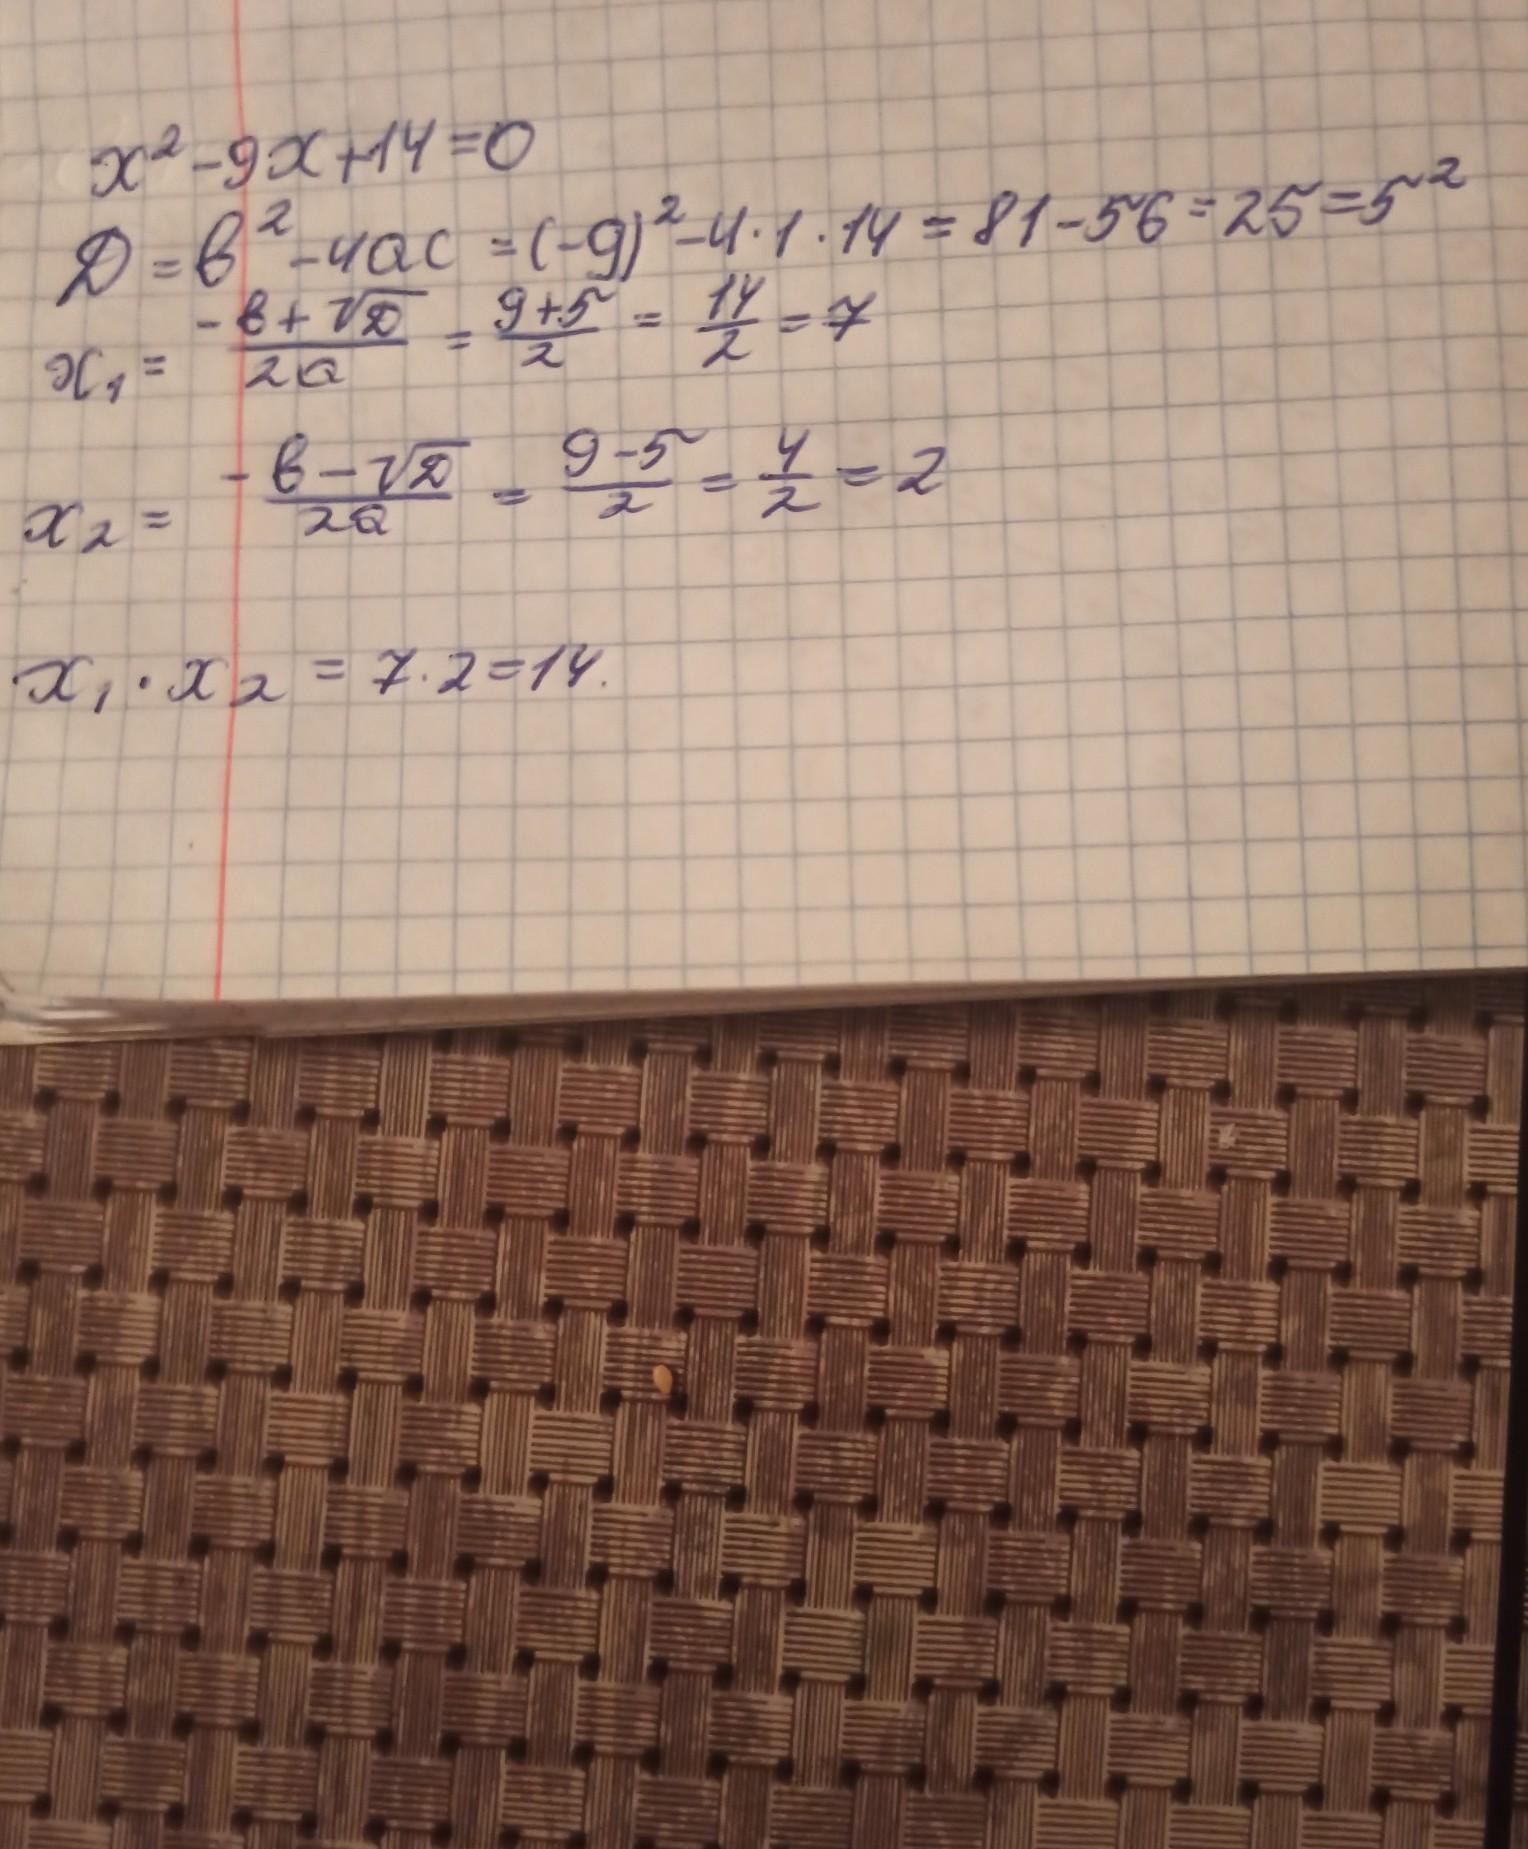 x² - 9x + 14 = 0
D = b² - 4ac = (-9)² - 4 · 1 · 14 = 81 - 56 = 25 = 5²
x₁ = (-b + √D)/(2a) = (9 + 5)/2 = 14/2 = 7
x₂ = (-b - √D)/(2a) = (9 - 5)/2 = 4/2 = 2
x₁ · x₂ = 7 · 2 = 14.